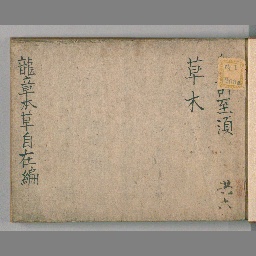 至須
共六
草木
龍章本草自在編